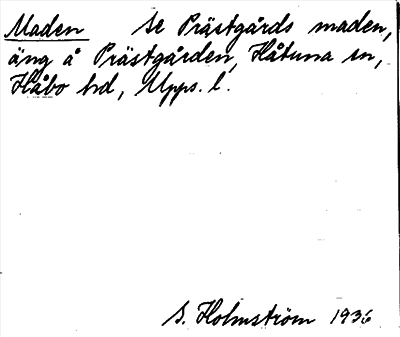 Maden Se Prästgårds maden,
äng å Prästgården, Håtuna sn,
Håbo hd, Upps. l.
S. Holmström 1936